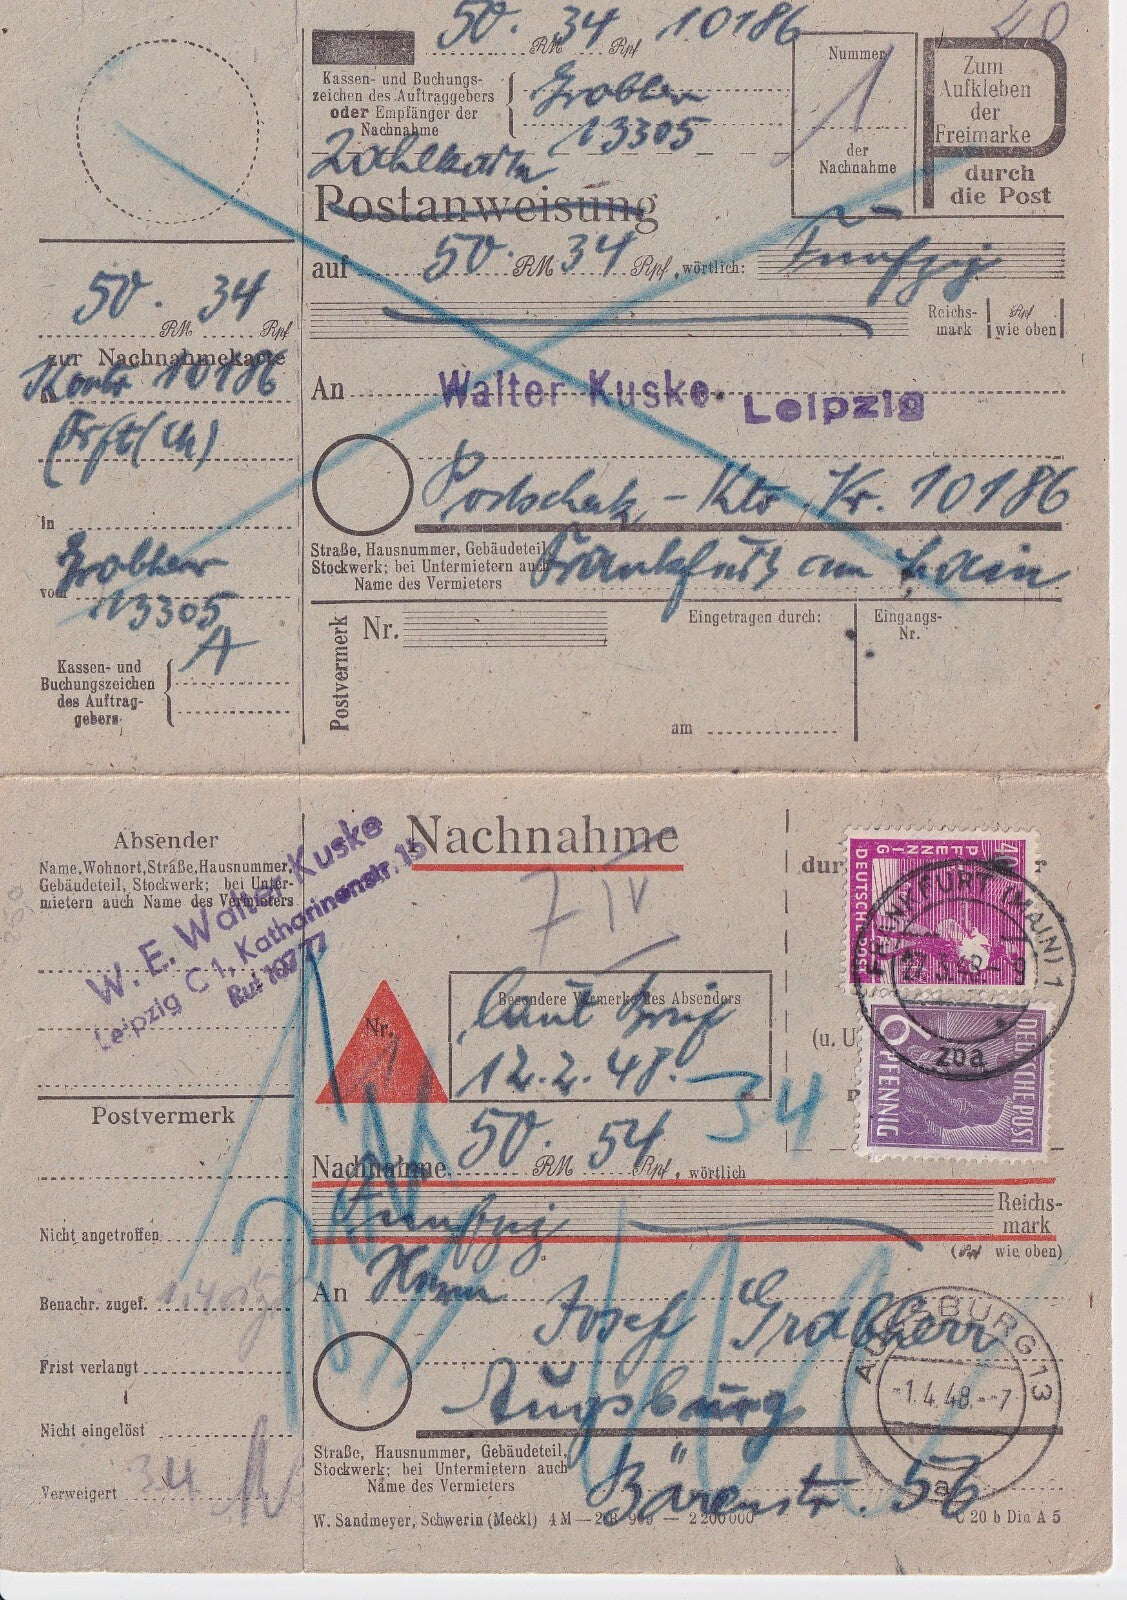 50. RM 34 Rpf 10186
40
Kassen- und Buchungs-
zeichen des Auftraggebers
oder Empfänger der
Nachnahme
Grabherr
13305
Nummer
1
der
Nachnahme
Zum
Aufkleben
der
Freimarke
durch
die Post
Zahlkarte
Postanweisung
auf 50. RM 34 Rpf, wörtlich: Fünfzig
Reichs-
mark
Rpf
wie oben
50. 34
RM Rpf
zur Nachnahmekarte
Konto 10186
Frft (M)
An Walter Kuske. Leipzig
Postscheck - Kto. Nr. 10186
in
Grabherr
vom
13305
A
Straße, Hausnummer, Gebäudeteil,
Stockwerk; bei Untermietern auch
Name des Vermieters
Frankfurt am Main
Kassen- und
Buchungszeichen
des Auftrag-
gebers
Postvermerk
Nr.
Eingetragen durch:
am
Eingangs-
Nr.
Absender
Name, Wohnort, Straße, Hausnummer,
Gebäudeteil, Stockwerk; bei Unter-
mietern auch Name des Vermieters
W. E. Walter Kuske
Leipzig C 1, Katharinenstr. 15
Ruf 197 77
Nachnahme
7 IV
dur
40
PFENNIG
DEUTSCHE POST
FRANKFURT (MAIN) 1
27.3.48.-9
zba
6
PFENNIG
DEUTSCHE POST
(u. U
Nr.
1
Besondere Vermerke des Absenders
laut Brief
12.2.48.
34
Nachnahme 50. RM 54 Rpf, wörtlich
Fünfzig
Reichs-
mark
(Rpf wie oben)
Postvermerk
Nicht angetroffen
Benachr. zugef. 1.4.
Frist verlangt
Nicht eingelöst
Verweigert
34
An Herrn
Josef Grabherr
Augsburg
AUGSBURG 13
-1.4.48.--7
a
Straße, Hausnummer, Gebäudeteil,
Stockwerk; bei Untermietern auch
Name des Vermieters
Bärenstr. 56
W. Sandmeyer, Schwerin (Meckl) 4M—2B 969 — 2 200 000
C 20 b Din A 5